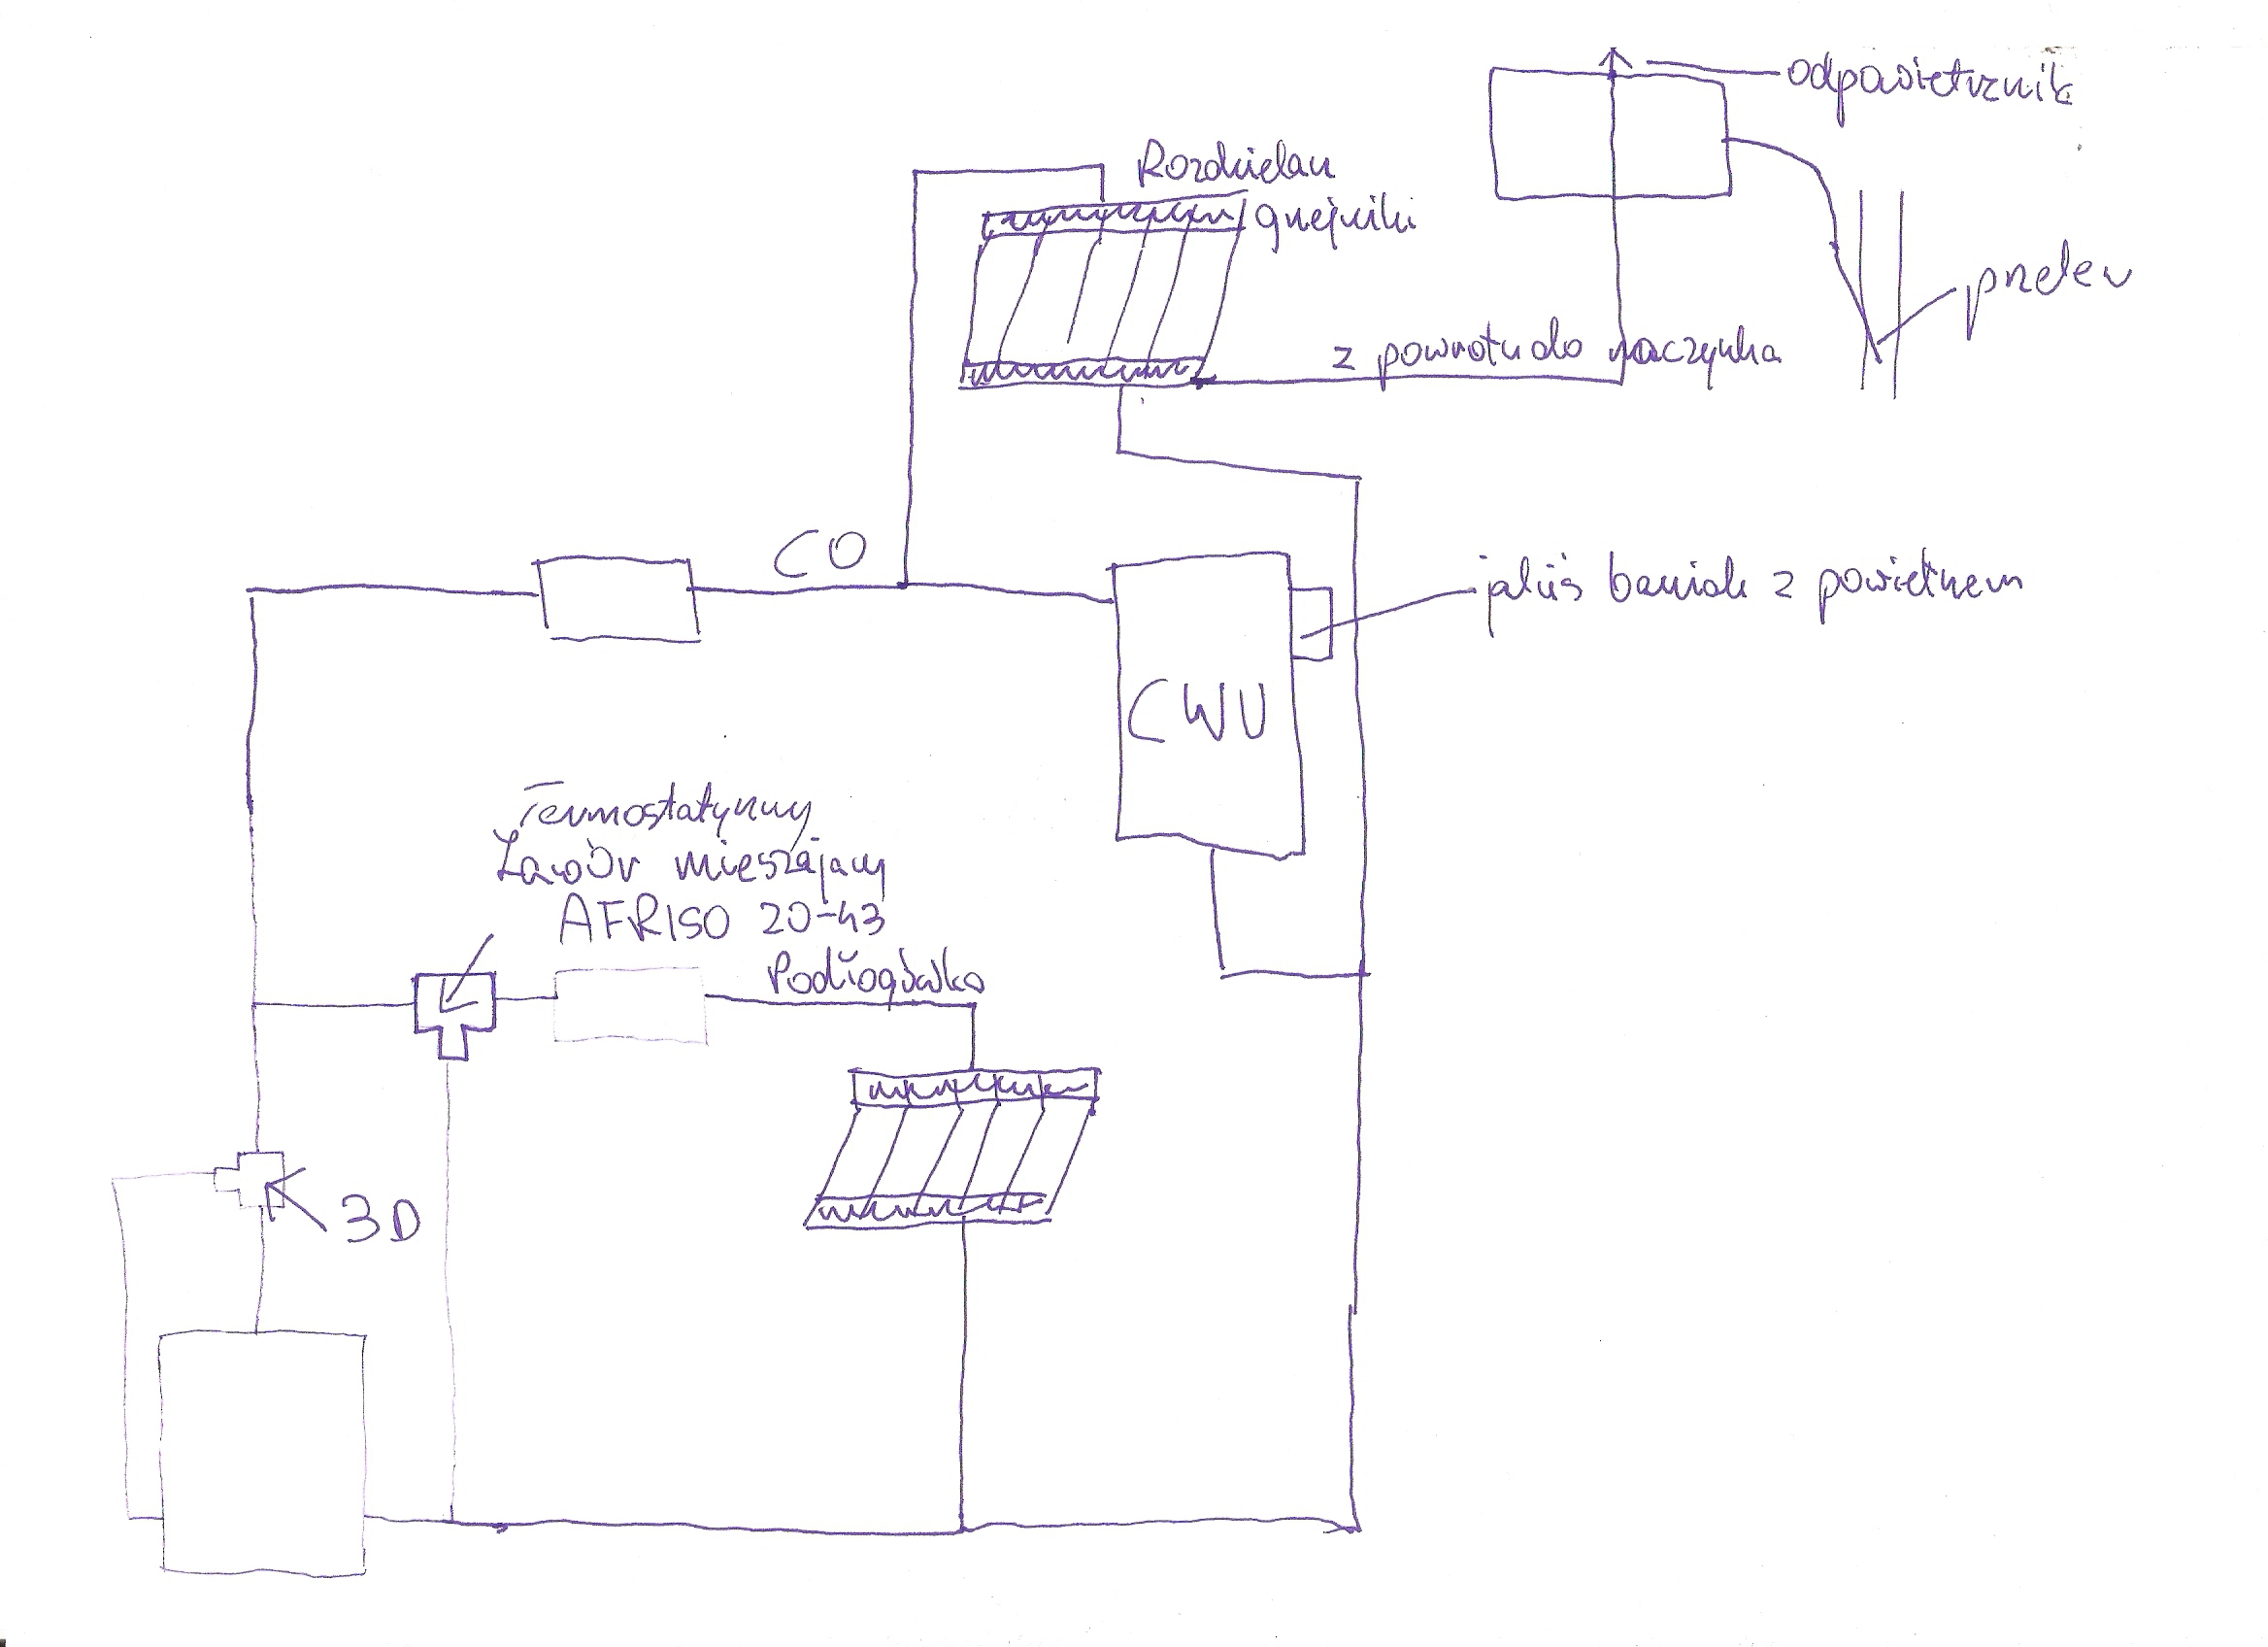 odpowietrznik
Rozdzielacz
grzejniki
przelew
z powrotu do naczynka
CO
jakiś baniak z powietrzem
CWU
Termostatyczny
Zawór mieszający
AFRISO 20-43
Podłogówka
3D